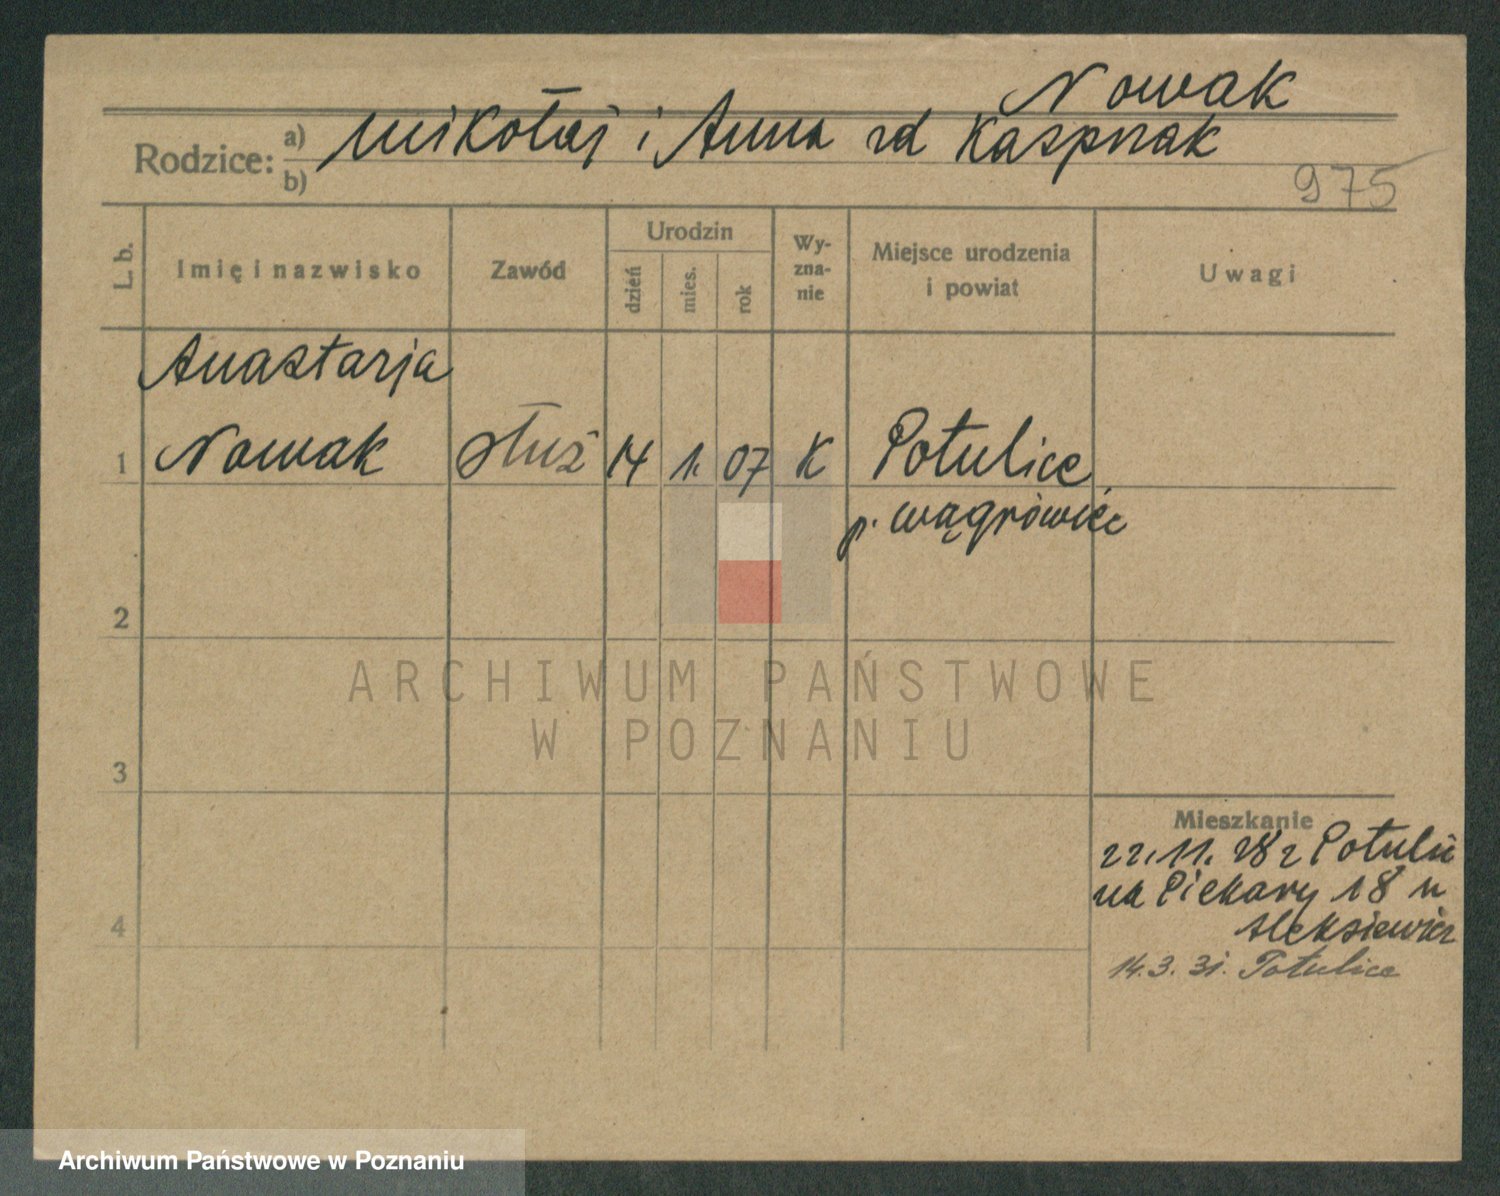 Nowak
Rodzice: a) Mikołaj i Anna zd Kasprzak
b)
975
L. b.
Imię i nazwisko
Zawód
Urodzin
dzień
mies.
rok
Wy-
zna-
nie
Miejsce urodzenia
i powiat
Uwagi
Anastazja
1 Nowak służ 14 1. 07 K Potulice
p. Wągrówiec
2
3
4
Mieszkanie
22.11.28 z Potulic
na Piekary 18 u
Aleksiewicz
14.3.31. Potulice
ARCHIWUM PAŃSTWOWE
W POZNANIU
Archiwum Państwowe w Poznaniu